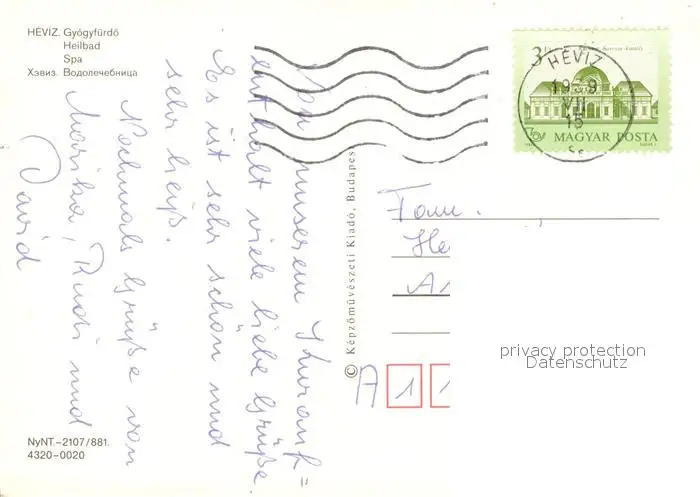 HÉVÍZ. Gyógyfürdő
Heilbad
Spa
Хэвиз. Водолечебница
Von unserem Kurauf=
enthalt viele liebe Grüße
Es ist sehr schön und
sehr heiß.
Nochmals Grüße von
Mariba, Rudi und
David
NyNT.–2107/881.
4320–0020
© Képzőművészeti Kiadó, Budapes
3
HÉVÍZ
19
9
VII
15
MAGYAR POSTA
Fam.
He
A
A 1
privacy protection
Datenschutz